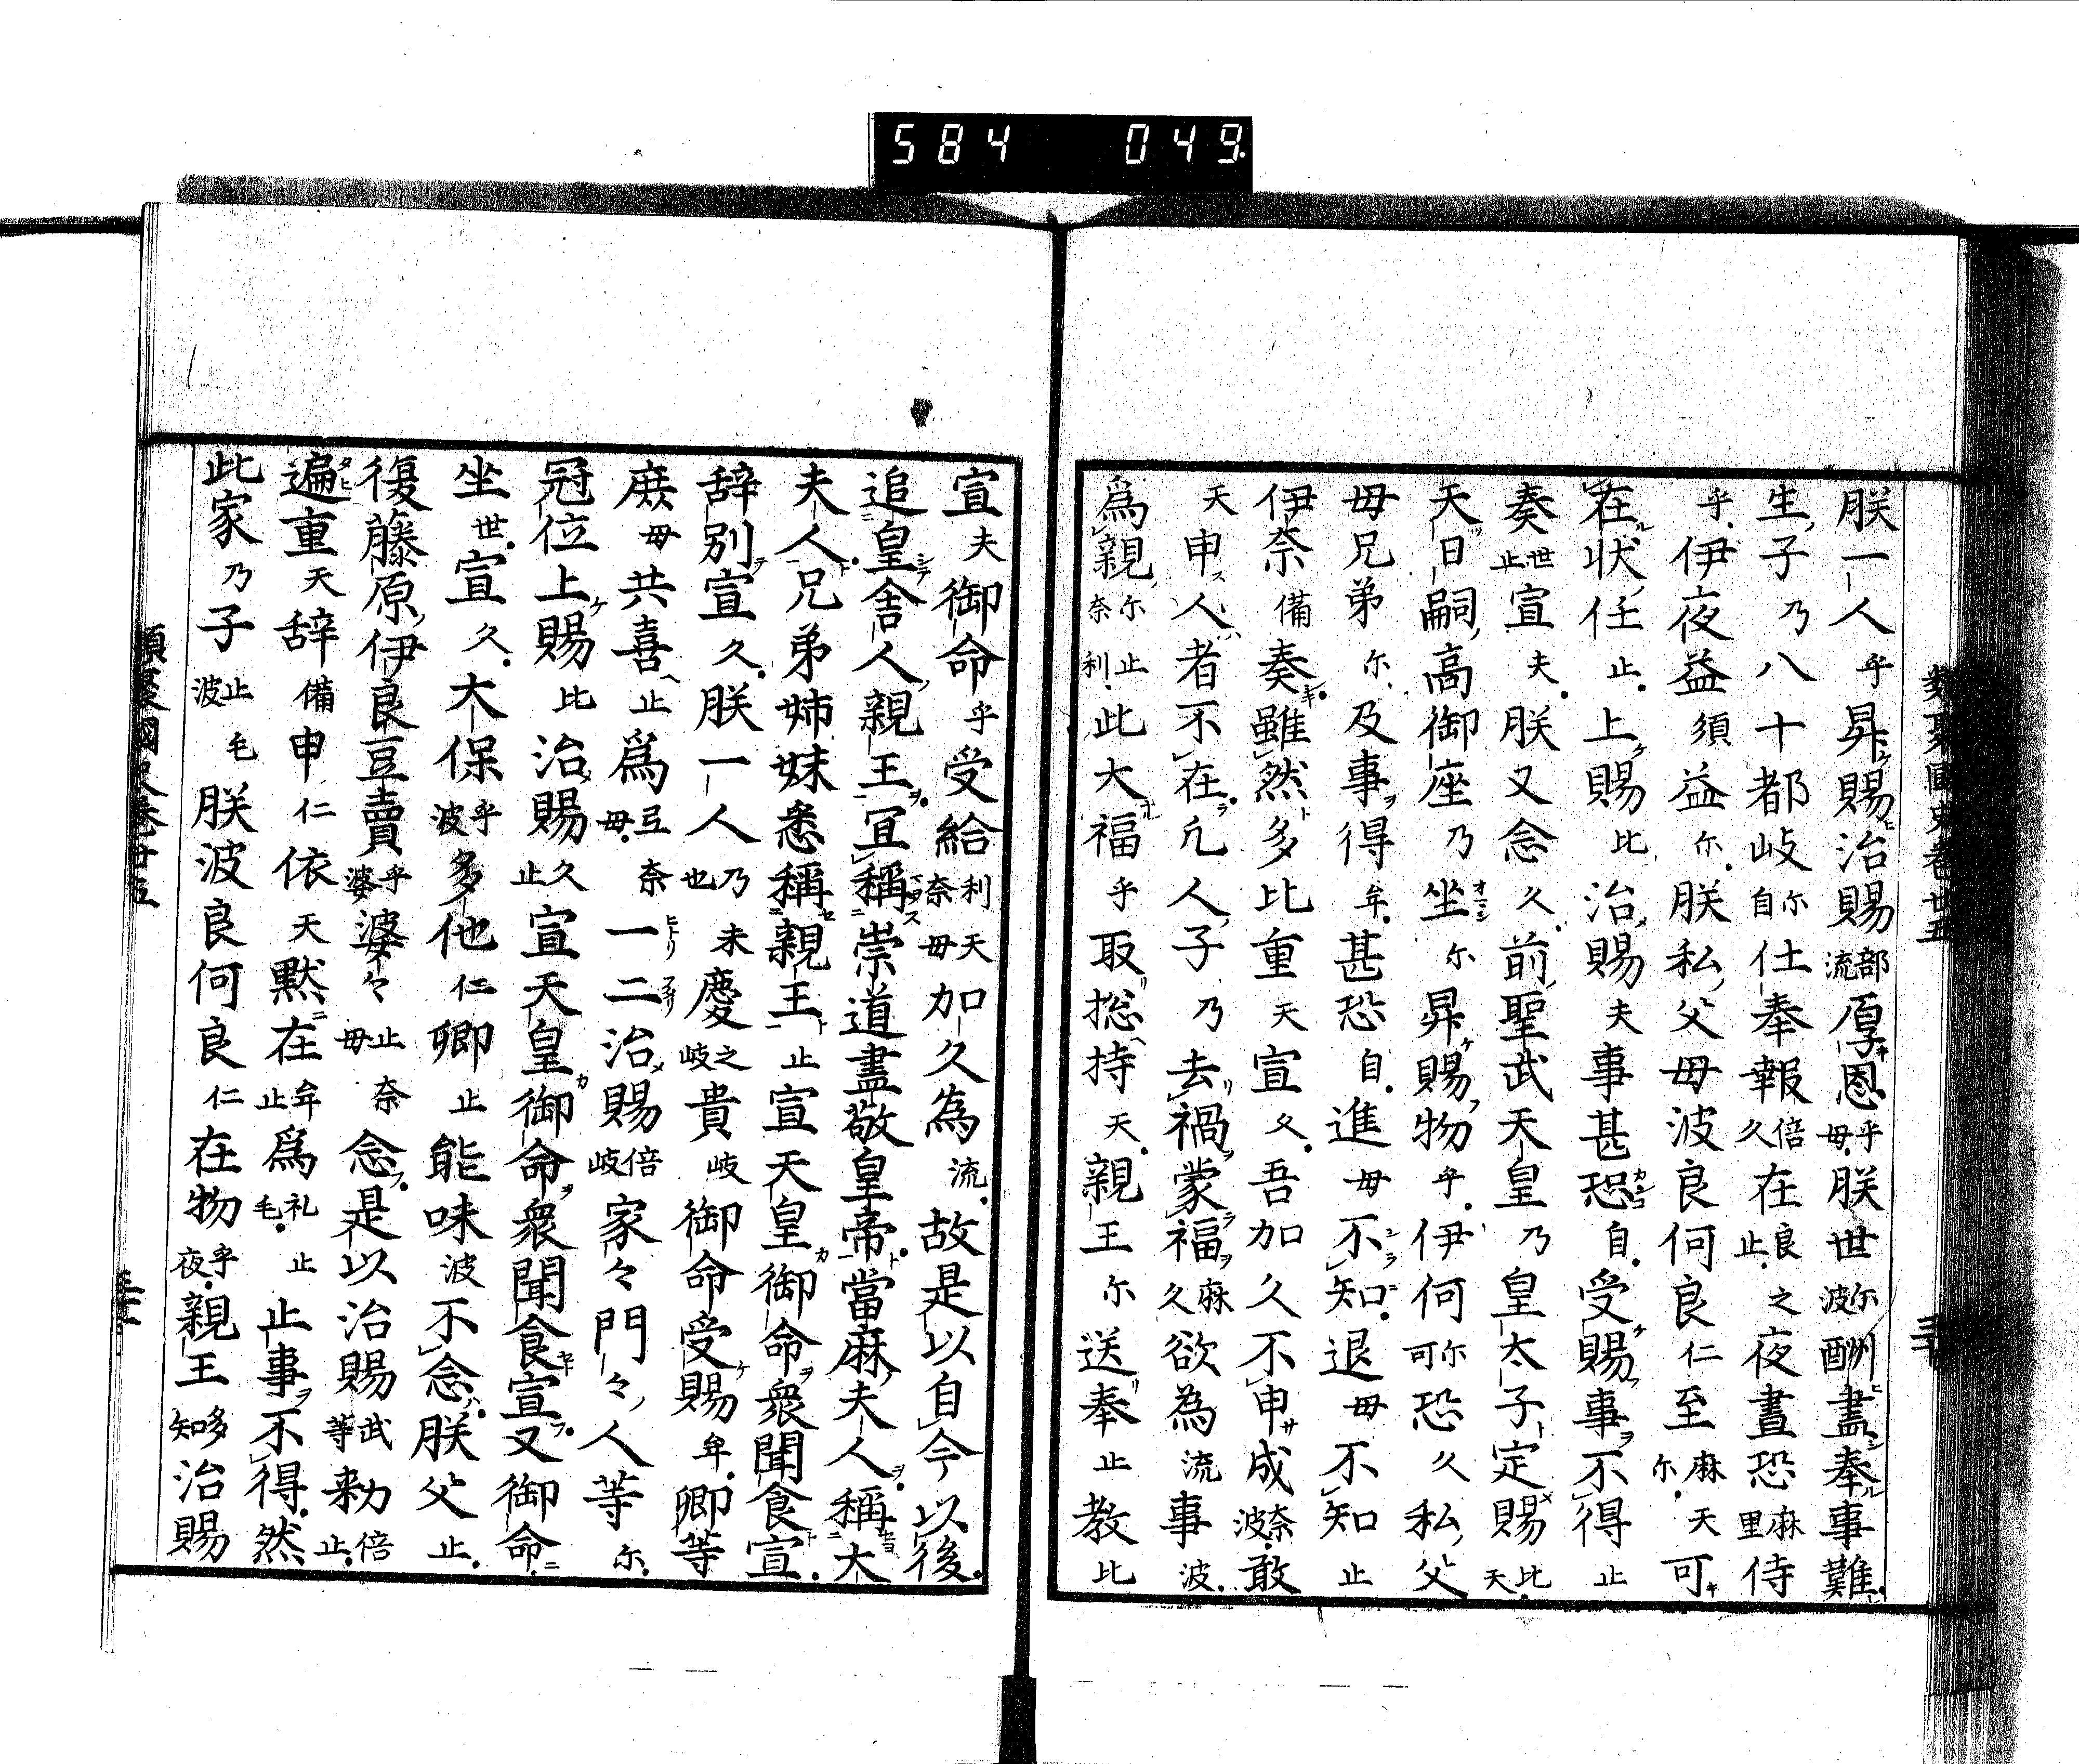 584 049
類聚國史卷廿五
朕一人乎昇賜治賜部流厚恩乎毋朕世尓波酬盡奉事難
生子乃八十都岐尓自仕奉報倍久在良止之夜晝恐麻里侍
乎伊夜益須益尓朕私父母波良何良仁至麻尓天可
在状任止上賜比治賜夫事甚恐自受賜事不得止
奏世止宣夫朕又念久前聖武天皇乃皇太子定賜比天
天日嗣高御座乃坐尓昇賜物乎伊何尓可恐久私父
毋兄弟尓及事得牟甚恐自進毋不知退毋不知止
伊奈備奏雖然多比重天宣久吾加久不申成奈波敢
天申人者不在凢人子乃去禍蒙福麻久欲為流事波
為親尓奈止利此大福乎取捴持天親王尓送奉止教比
宣夫御命乎受給利奈天毋加久為流故是以自今以後
追皇舎人親王冝稱崇道盡敬皇帝當麻夫人稱大
夫人兄弟姉妹悉稱親王止宣天皇御命衆聞食宣
辞別宣久朕一人乃也未慶之岐貴岐御命受賜牟卿等
庶毋共喜止為豆毋奈一二治賜倍岐家々門々人等尓
冠位上賜比治賜久止宣天皇御命衆聞食宣又御命
坐世宣久大保乎波多他仁卿止能味波不念朕父止
復藤原伊良豆賣乎婆婆々止毋奈念是以治賜武等勑倍止
遍重天辞備申仁依天黙在牟止為礼毛止止事不得然
此家乃子止波毛朕波良何良仁在物乎夜親王多知治賜
類聚國史卷廿五